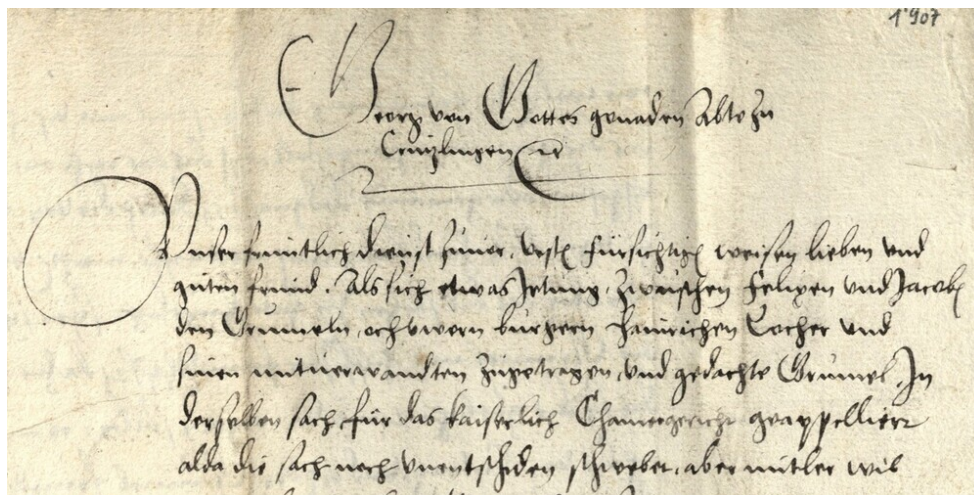 1907
Georg von Gottes gnaden Abte zu
Creutzlingen etc
Unser fruntlich dienst zuvor, vest fürsichtig weisen lieben und
guten fründ. Als sich etwas Irtung, zwüschen Felixen und Jacob
den Grumeln, uwern burgern Hainrichen Locher und
sinen mitverwandten zugetragen, und gedachte Grumel, In
derselben sach, für das kaiserlich Chamergericht geappelliert
alda die sach noch unentschiden schwebet, aber mitler wil